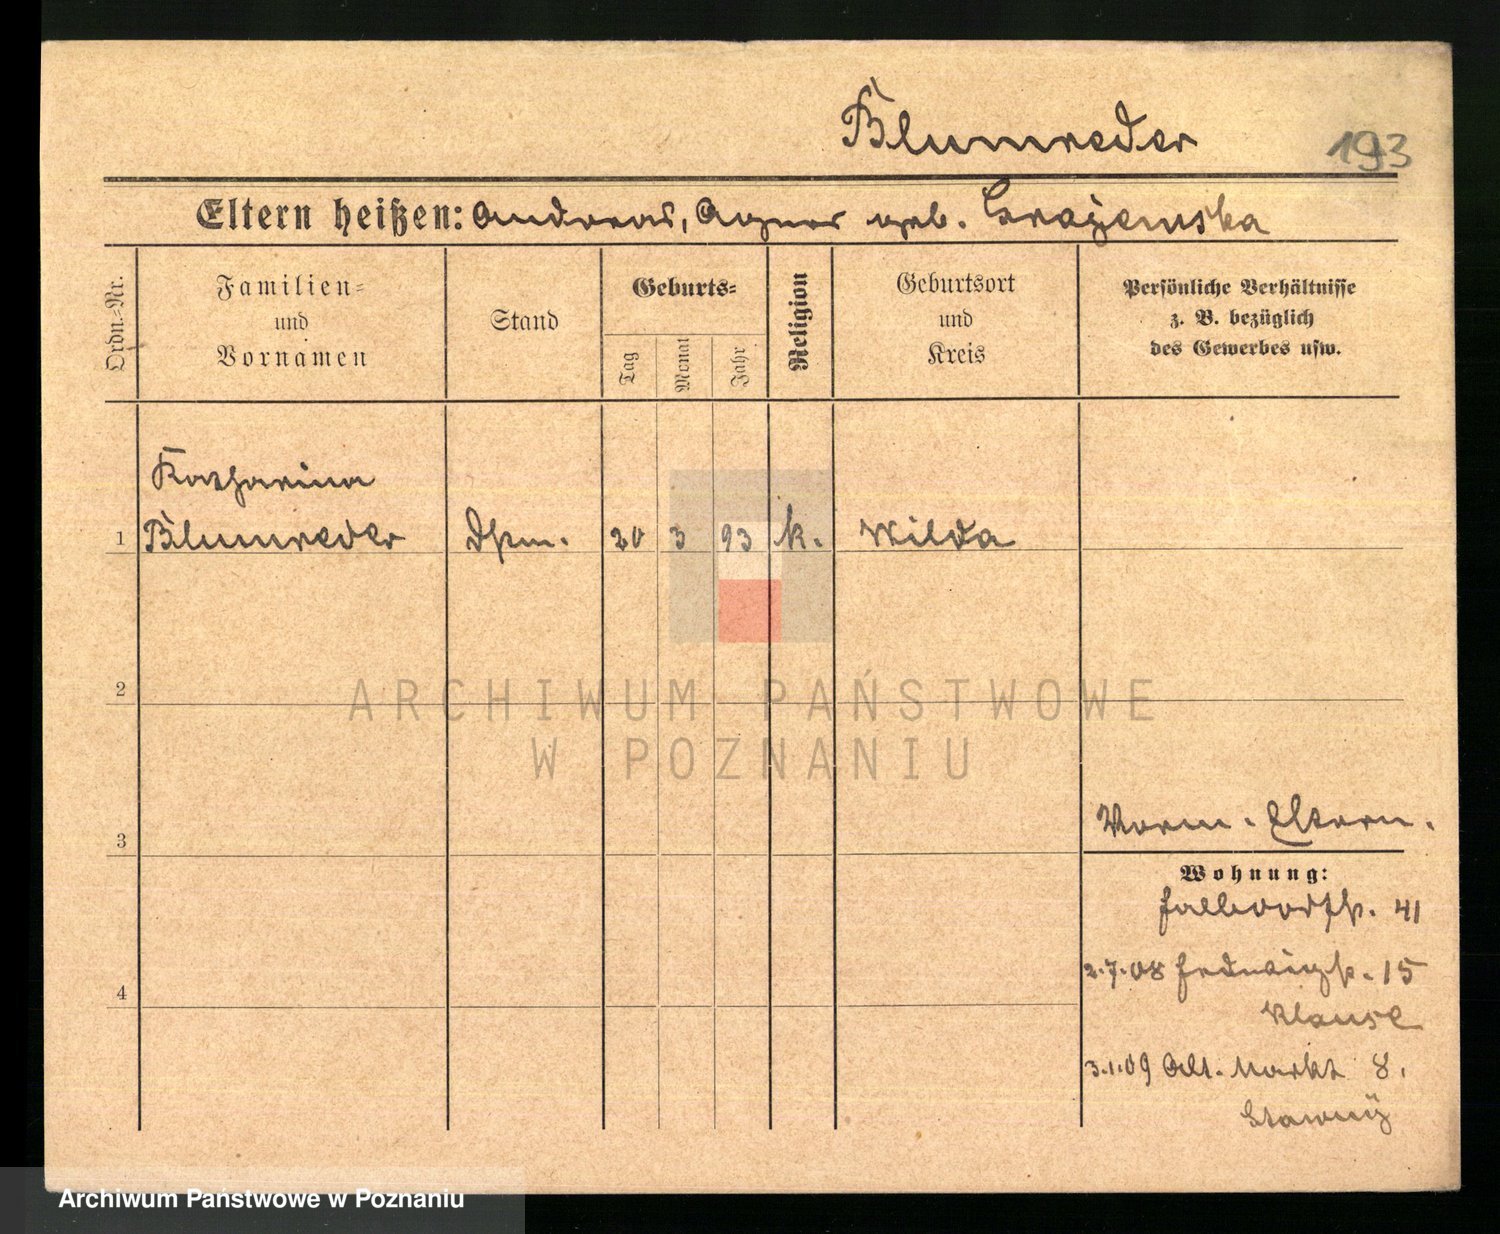 Blumreder
193
Eltern heißen: Andreas, Agnes geb. Grazemska
Ordn.-Nr.
Familien-
und
Vornamen
Stand
Geburts-
Tag
Monat
Jahr
Religion
Geburtsort
und
Kreis
Persönliche Verhältnisse
z. B. bezüglich
des Gewerbes usw.
Katharina
1 Blumreder 20 3 93 k. Wilda
2
3
Eltern.
Wohnung:
41
4
2.7.08 15
3.1.09 Alt. Markt 8.
ARCHIWUM PAŃSTWOWE
W POZNANIU
Archiwum Państwowe w Poznaniu